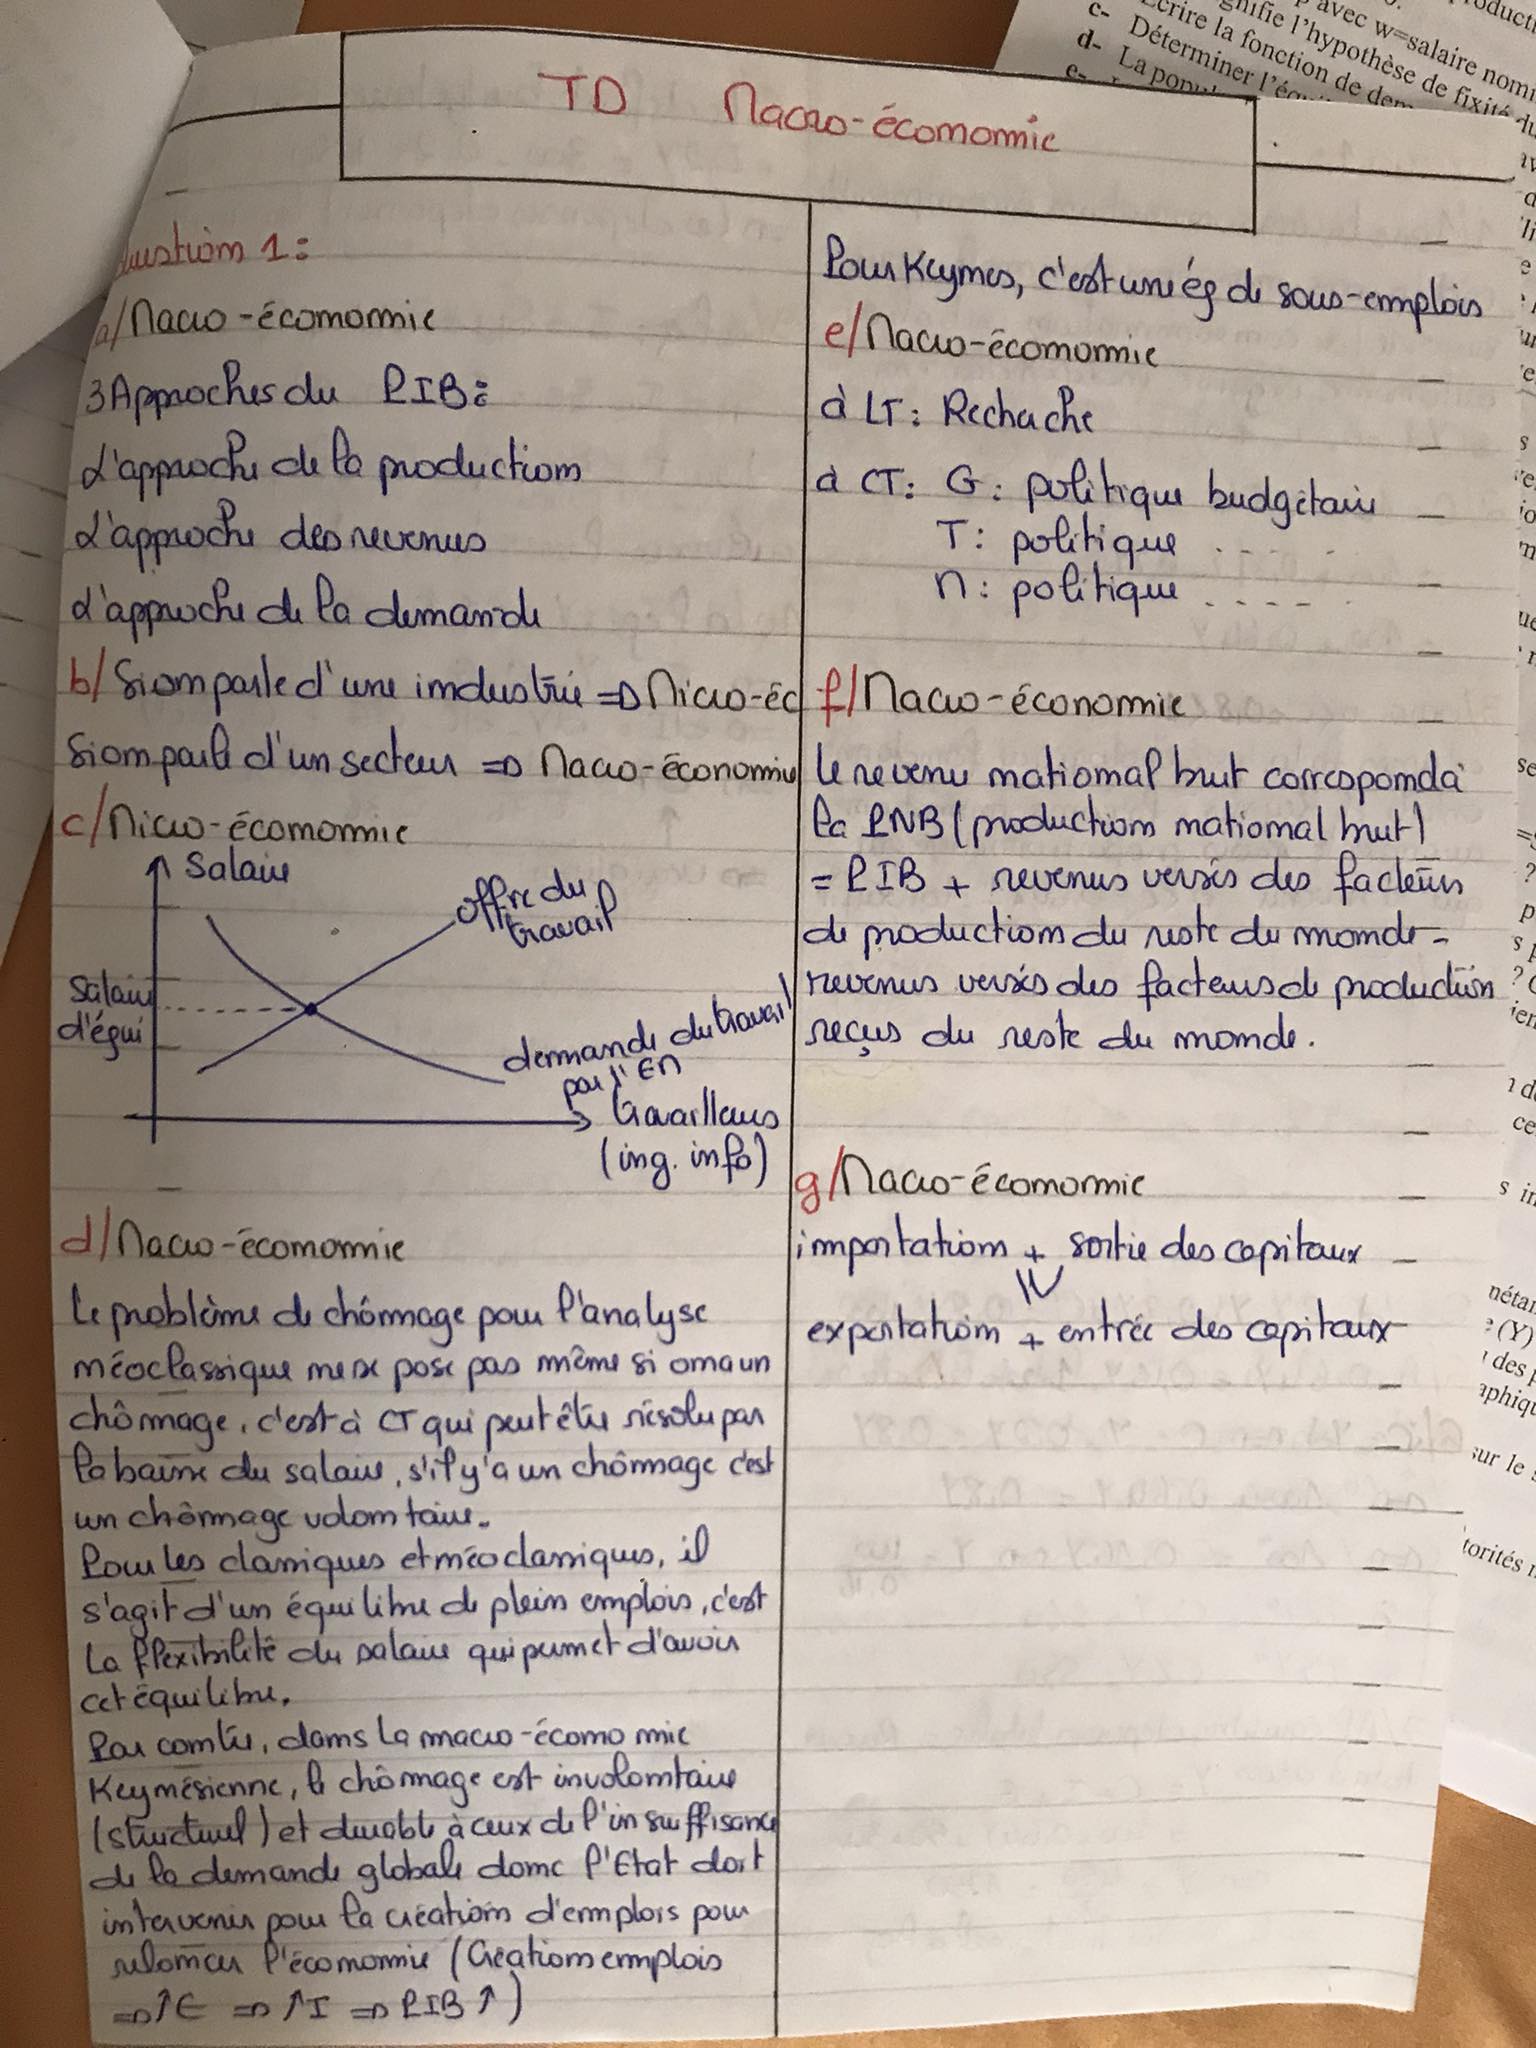 TD Macro-économie
Question 1:
a/ Macro-économie
3 Approches du PIB:
L'approche de la production
L'approche des revenus
L'approche de la demande
b/ Si on parle d'une industrie => Micro-éc
Si on parle d'un secteur => Macro-économie
c/ Micro-économie
Salaire
offre du
travail
Salaire
d'équi
demande du travail
par l'EN
travailleurs
(ing. info)
d/ Macro-économie
Le problème de chômage pour l'analyse
néoclassique ne se pose pas même si on a un
chômage, c'est à CT qui peut être résolu par
la baisse du salaire, s'il y'a un chômage c'est
un chômage volontaire.
Pour les classiques et néoclassiques, il
s'agit d'un équilibre de plein emplois, c'est
la flexibilité du salaire qui permet d'avoir
cet équilibre.
Par contre, dans la macro-économie
Keynésienne, le chômage est involontaire
(structurel) et durable à ceux de l'insuffisance
de la demande globale donc l'Etat doit
intervenir pour la création d'emplois pour
relancer l'économie (Créations emplois
=> ↑C => ↑I => PIB ↑)
Pour Keynes, c'est un éq de sous-emplois
e/ Macro-économie
à LT: Recherche
à CT: G: politique budgétaire
T: politique .....
M: politique .....
f/ Macro-économie
le revenu national brut correspond à
la PNB (production national brut)
= PIB + revenus versés des facteurs
de production du reste du monde -
revenus versés des facteurs de production
reçus du reste du monde.
g/ Macro-économie
importation + sortie des capitaux
exportation + entrée des capitaux
avec w=salaire nomi
c- Ecrire la fonction de dem
gnifie l'hypothèse de fixité du
d- Déterminer l'équi
e- La popul